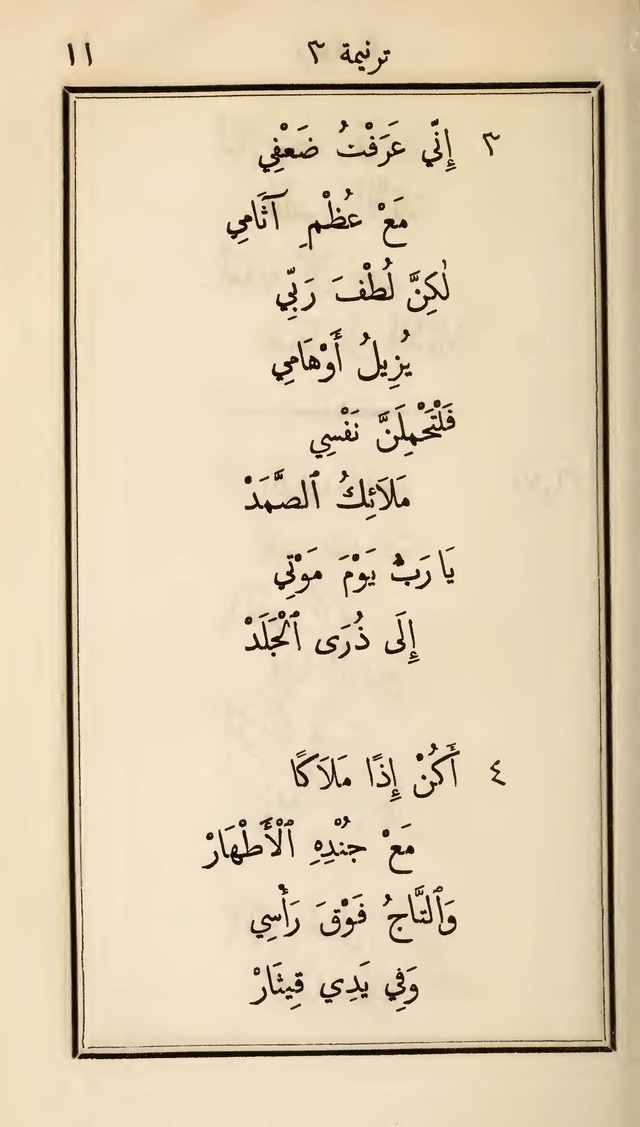 ترنيمة ٣ ١١
٣ إِنِّي عَرَفْتُ ضَعْفِي
مَعْ عُظْمِ آثَامِي
لٰكِنَّ لُطْفَ رَبِّي
يُزِيلُ أَوْهَامِي
فَلْتَحْمِلَنَّ نَفْسِي
مَلَائِكُ ٱلصَّمَدْ
يَا رَبُّ يَوْمَ مَوْتِي
إِلَى ذُرَى ٱلْجَلَدْ
٤ أَكُنْ إِذًا مَلَاكًا
مَعْ جُنْدِهِ ٱلْأَطْهَارْ
وَٱلتَّاجُ فَوْقَ رَأْسِي
وَفِي يَدِي قِيثَارْ